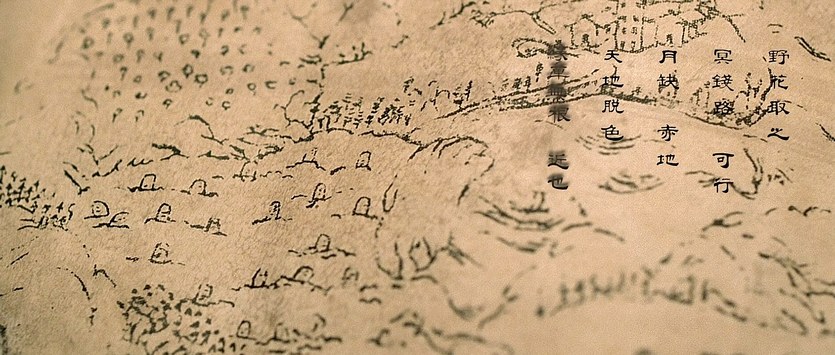 野花取之
冥錢路 可行
月缺 赤地
天地脱色
無根 近也